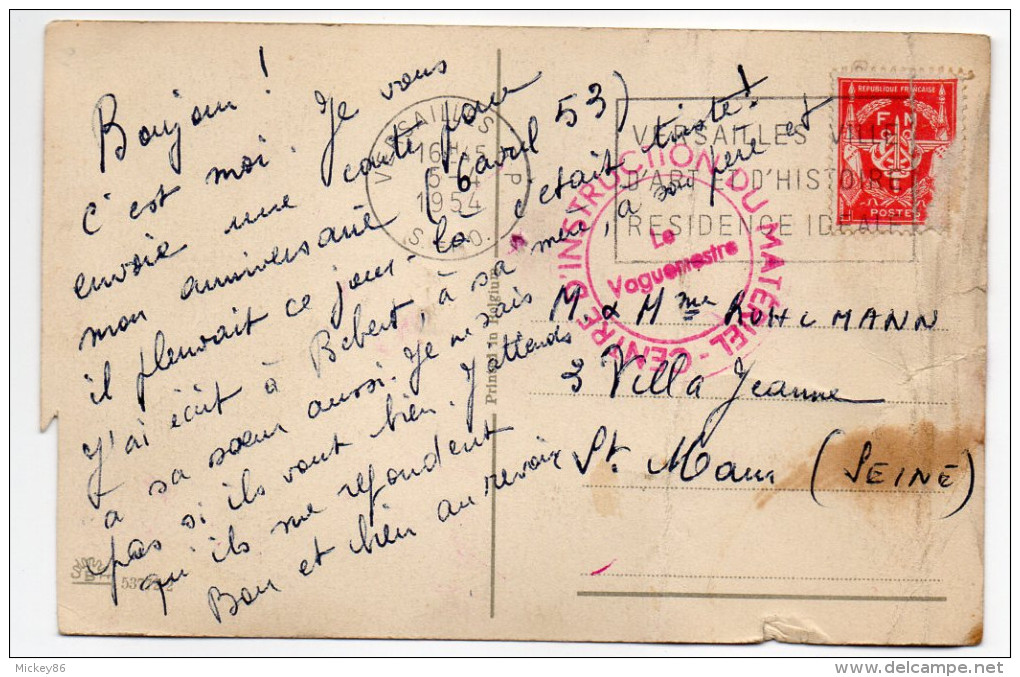 Bonjour !
c'est moi. Je vous
envoie une carte pour
mon anniversaire (6 avril 53)
il pleuvait ce jour-là c'était triste !
J'ai écrit à Bebert, à sa mère, à son père et
à sa soeur aussi. Je ne sais
pas si ils vont bien. J'attends
qu'ils me répondent
Bon et bien au revoir
Printed in Belgium
VERSAILLES
16H45
1954
S.-&-O.
VERSAILLES VILLE
D'ART ET D'HISTOIRE
RESIDENCE IDEALE
REPUBLIQUE FRANÇAISE
F M
POSTES
CENTRE D'INSTRUCTION DU MATÉRIEL
Le
Vaguemestre
M. & Mme RUHLMANN
3 Villa Jeanne
St. Maur (SEINE)
Mickey86
www.delcampe.net